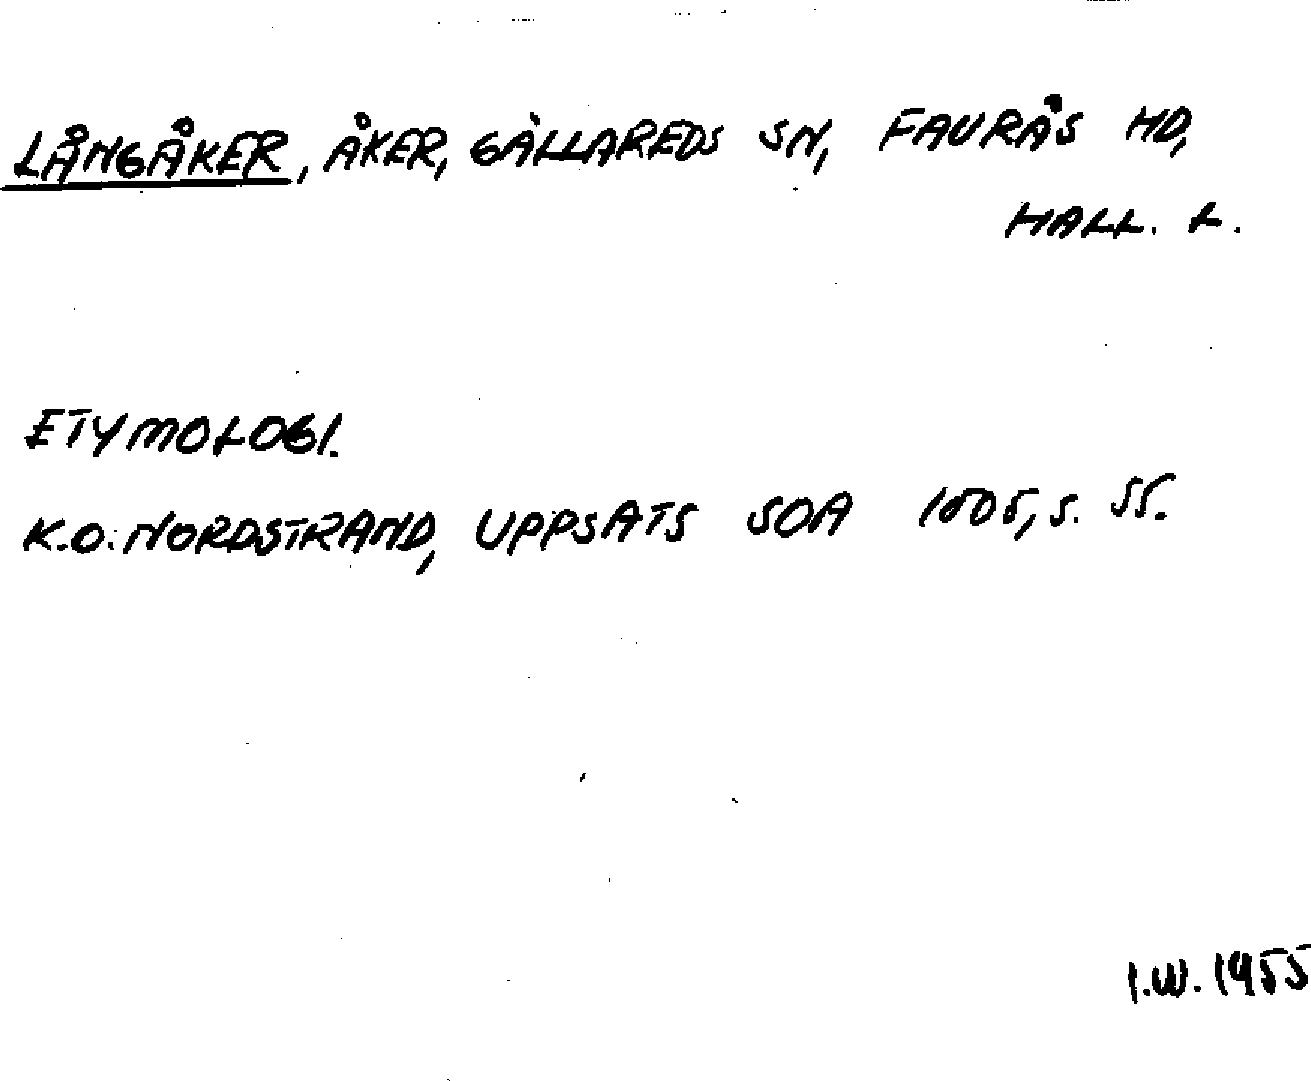 LÅNGÅKER, ÅKER, GÄLLAREDS SN, FAURÅS HD,
HALL. L.
ETYMOLOGI.
K.O. NORDSTRAND, UPPSATS SOA 1505, S. 55.
I.W. 1955